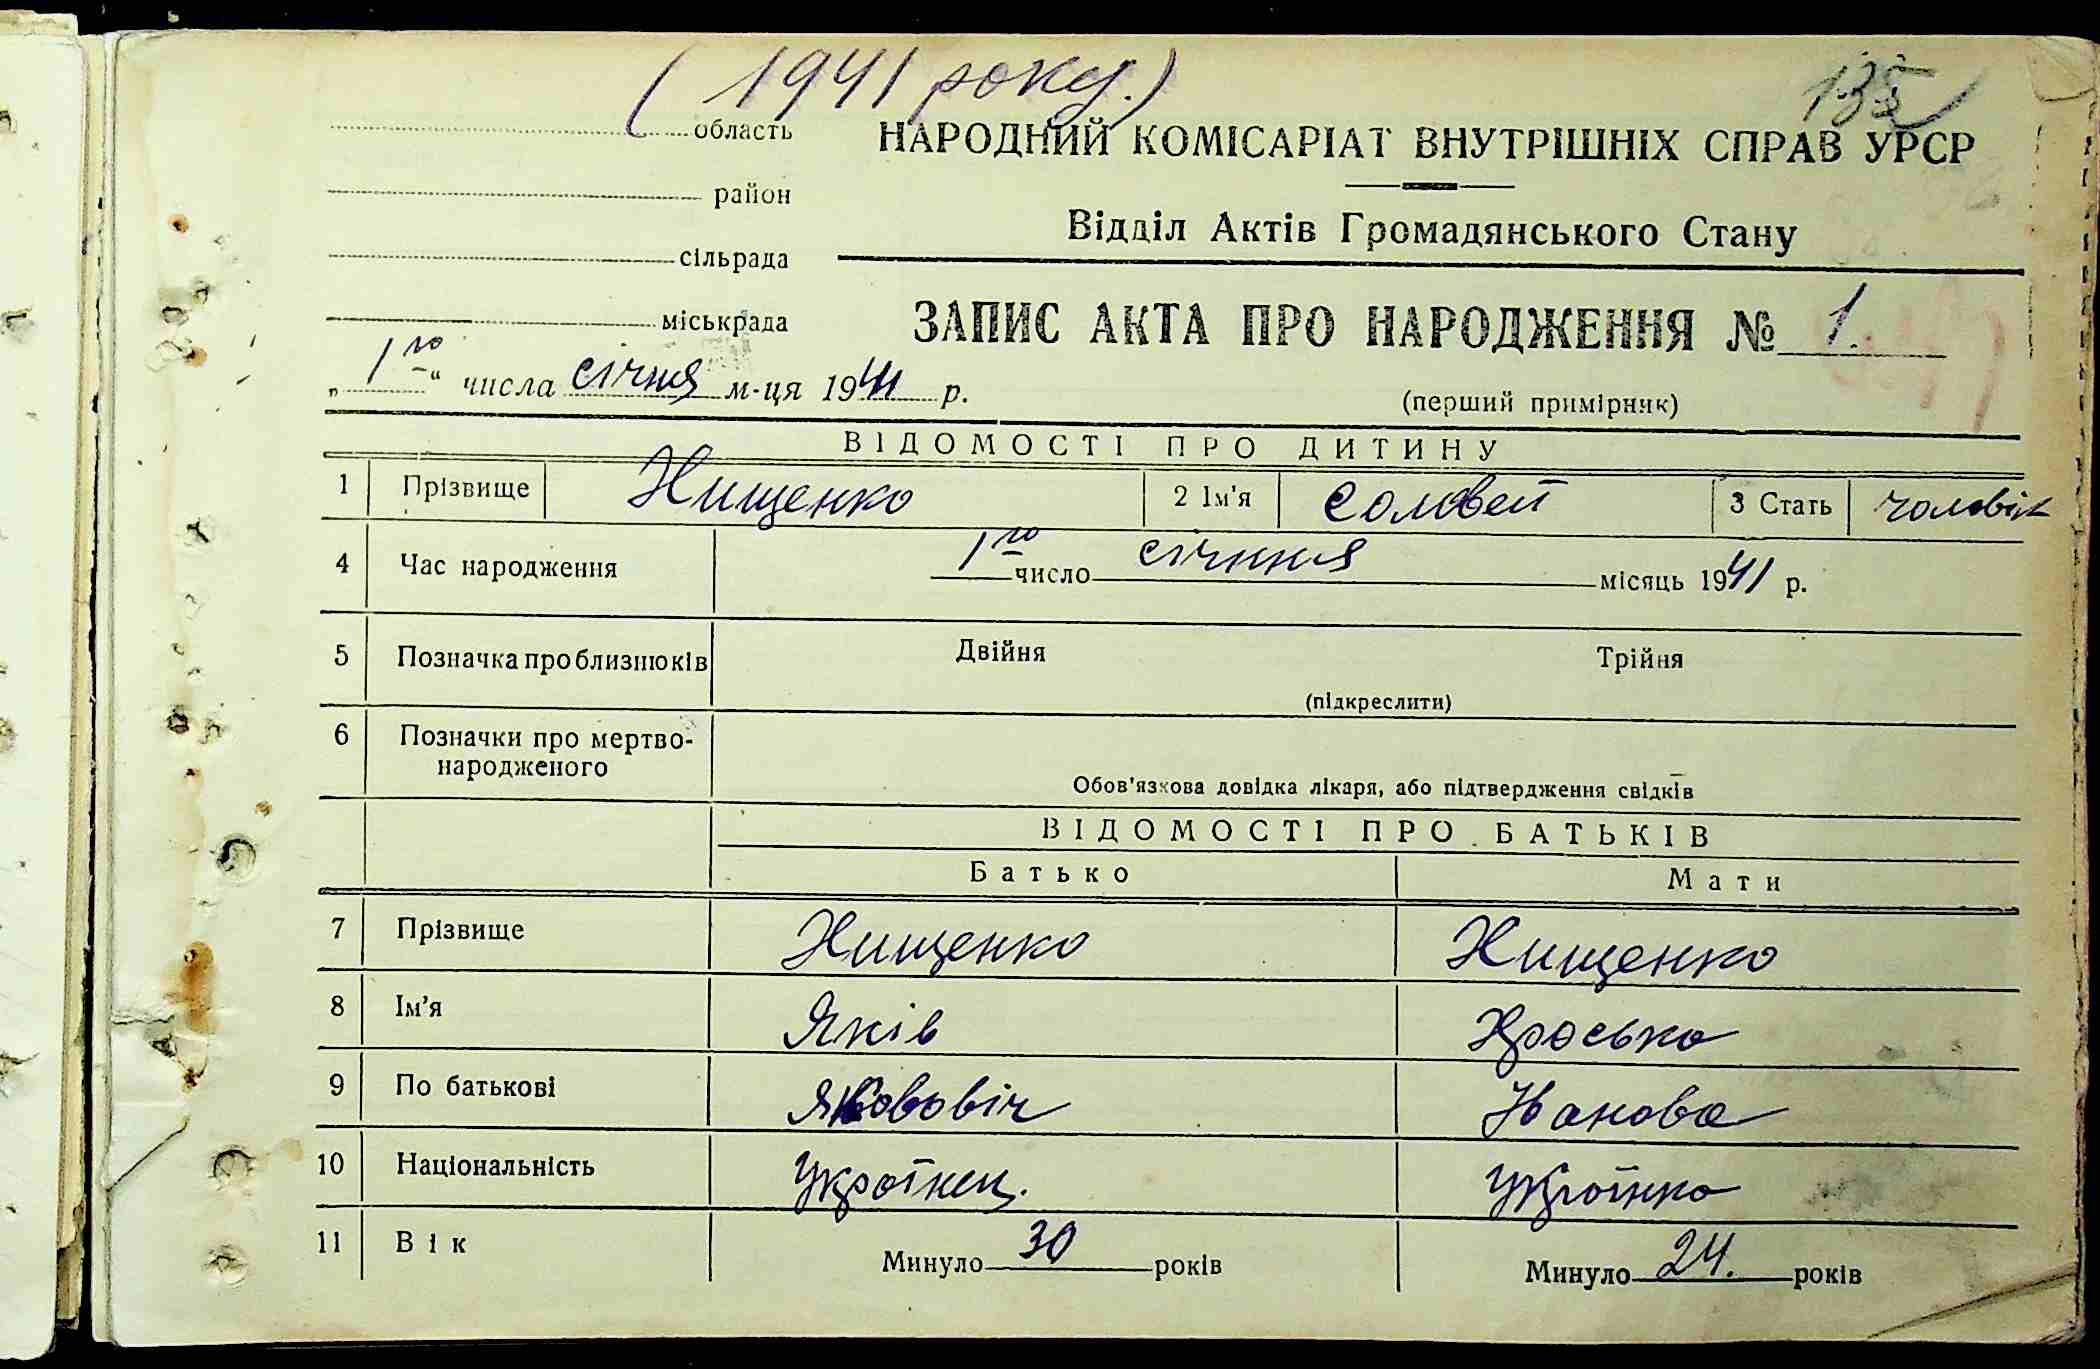 (1941 року.)
135
область
НАРОДНИЙ КОМІСАРІАТ ВНУТРІШНІХ СПРАВ УРСР
район
Відділ Актів Громадянського Стану
сільрада
міськрада
ЗАПИС АКТА ПРО НАРОДЖЕННЯ № 1.
„1го“ числа січня м-ця 1941 р.
(перший примірник)
ВІДОМОСТІ ПРО ДИТИНУ
1 Прізвище Нищенко 2 Ім'я Соловей 3 Стать чоловік
4 Час народження 1го число січння місяць 1941 р.
5 Позначка про близнюків Двійня Трійня
(підкреслити)
6 Позначки про мертво-
народженого
Обов'язкова довідка лікаря, або підтвердження свідків
ВІДОМОСТІ ПРО БАТЬКІВ
Батько Мати
7 Прізвище Нищенко Нищенко
8 Ім'я Яків
9 По батькові Яковович Іванова
10 Національність Українец. Українка
11 Вік Минуло 30 років Минуло 24. років